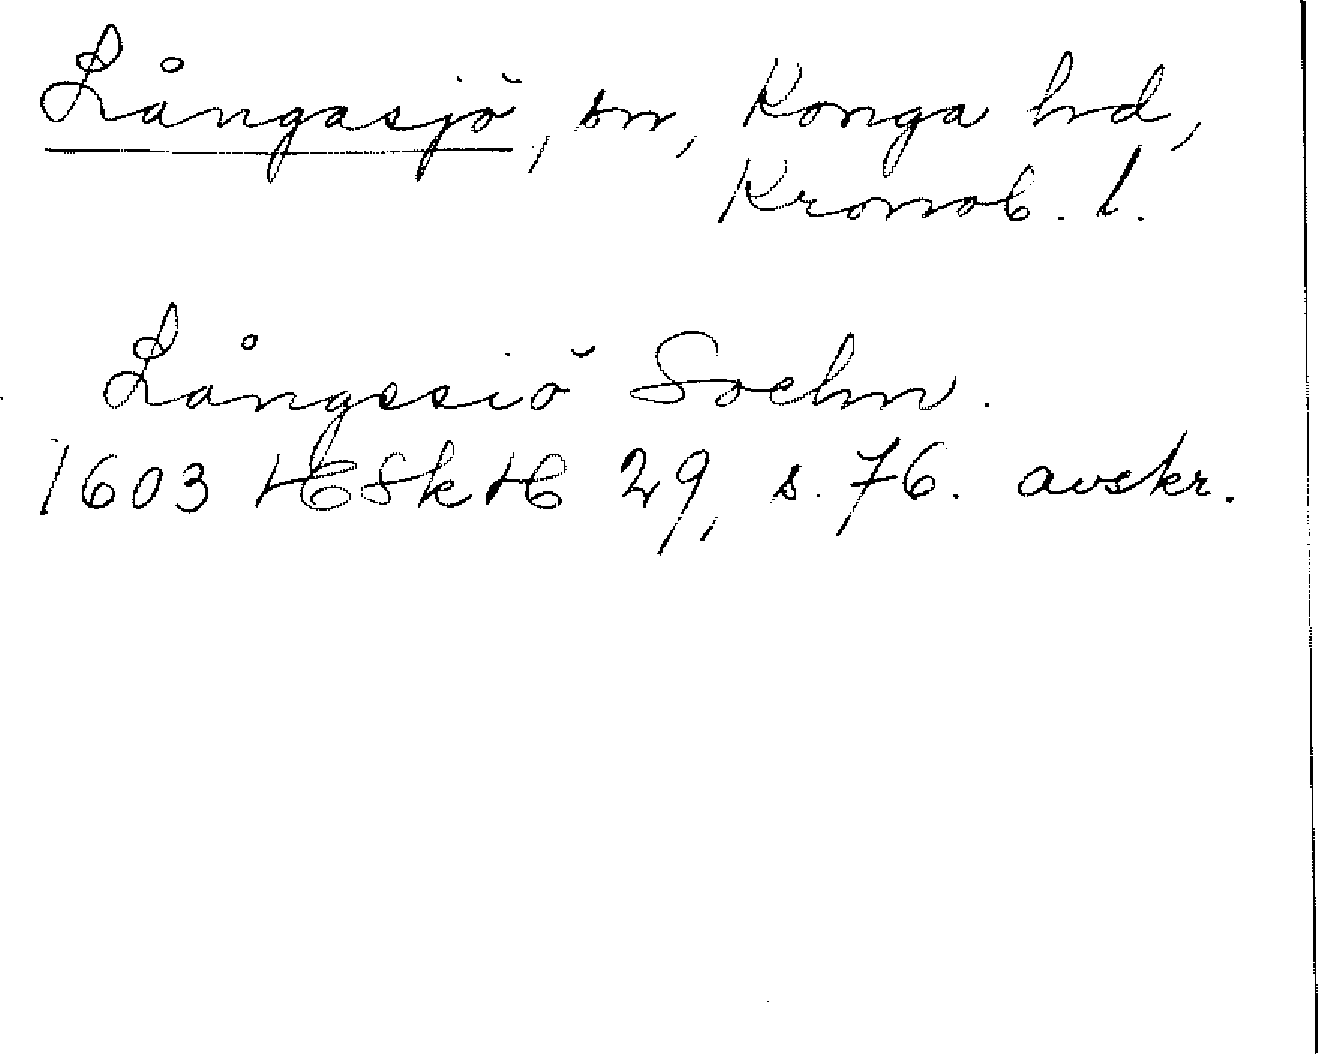 Långasjö, sn, Konga hd,
Kronob. l.
Långssiö Sochn.
1603 HESkHC 29, s. 76. avskr.